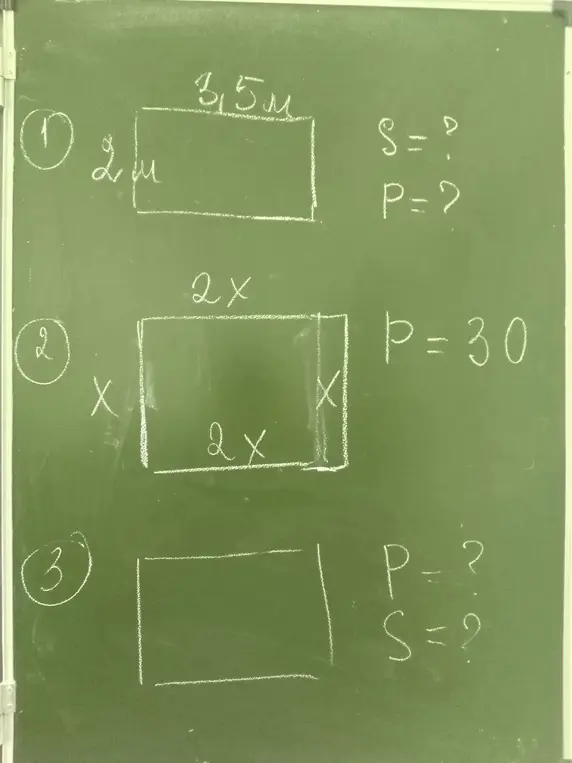 1
3,5м
2м
S = ?
P = ?
2
2x
x
x
2x
P = 30
3
P = ?
S = ?